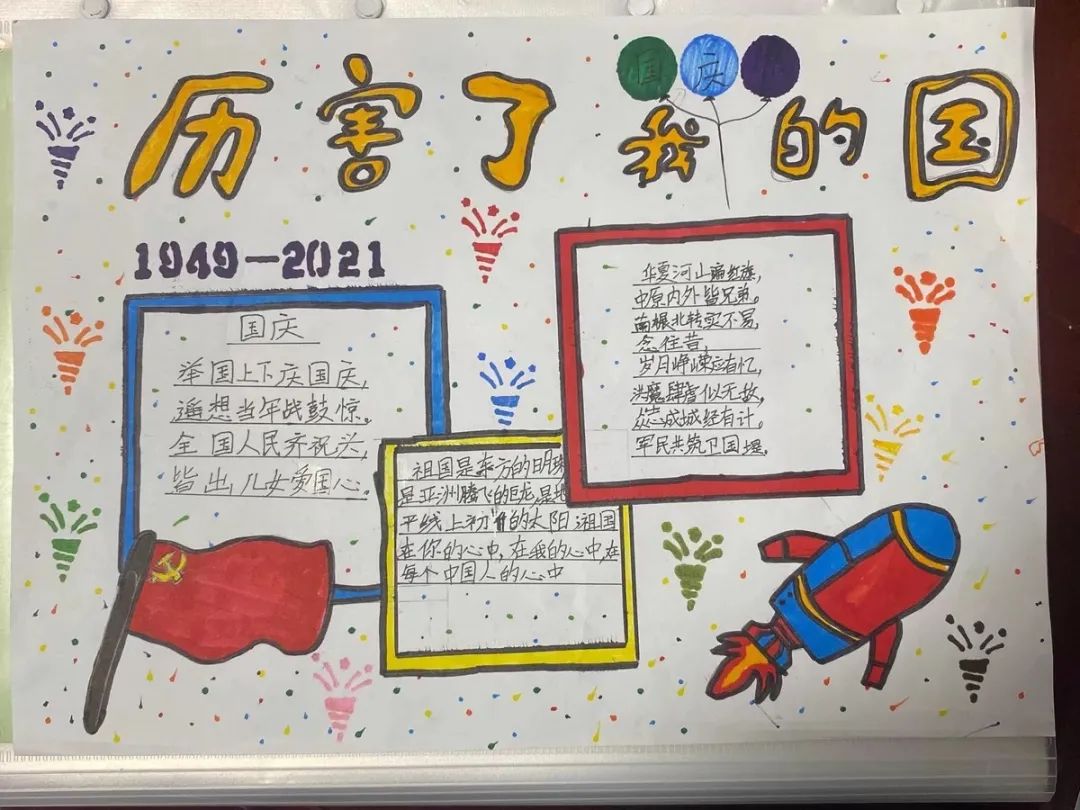 厉害了我的国
国庆
1949-2021
国庆
举国上下庆国庆,
遥想当年战鼓惊。
全国人民齐祝兴,
皆出儿女爱国心。
祖国是东方的明珠
是亚洲腾飞的巨龙,是地
平线上初升的太阳,祖国
在你的心中,在我的心中,在
每个中国人的心中
华夏河山 红旗,
中原内外皆兄弟。
南 北转实不易,
念往昔,
岁月峥嵘应有忆,
洪魔肆虐似无敌,
众志成城经有计。
军民共筑卫国堤。